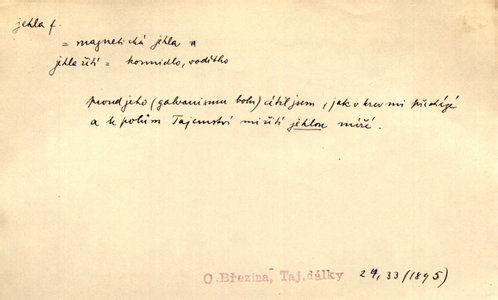 jehla f.
= magnetická jehla "
jehla žití = kormidlo, vodítko
proud jeho (galvanismu bolu) cítil jsem, jak v krev mi přechází
a k polům Tajemství mi žití jehlou míří.
O. Březina, Taj. dálky 24, 33 (1895)